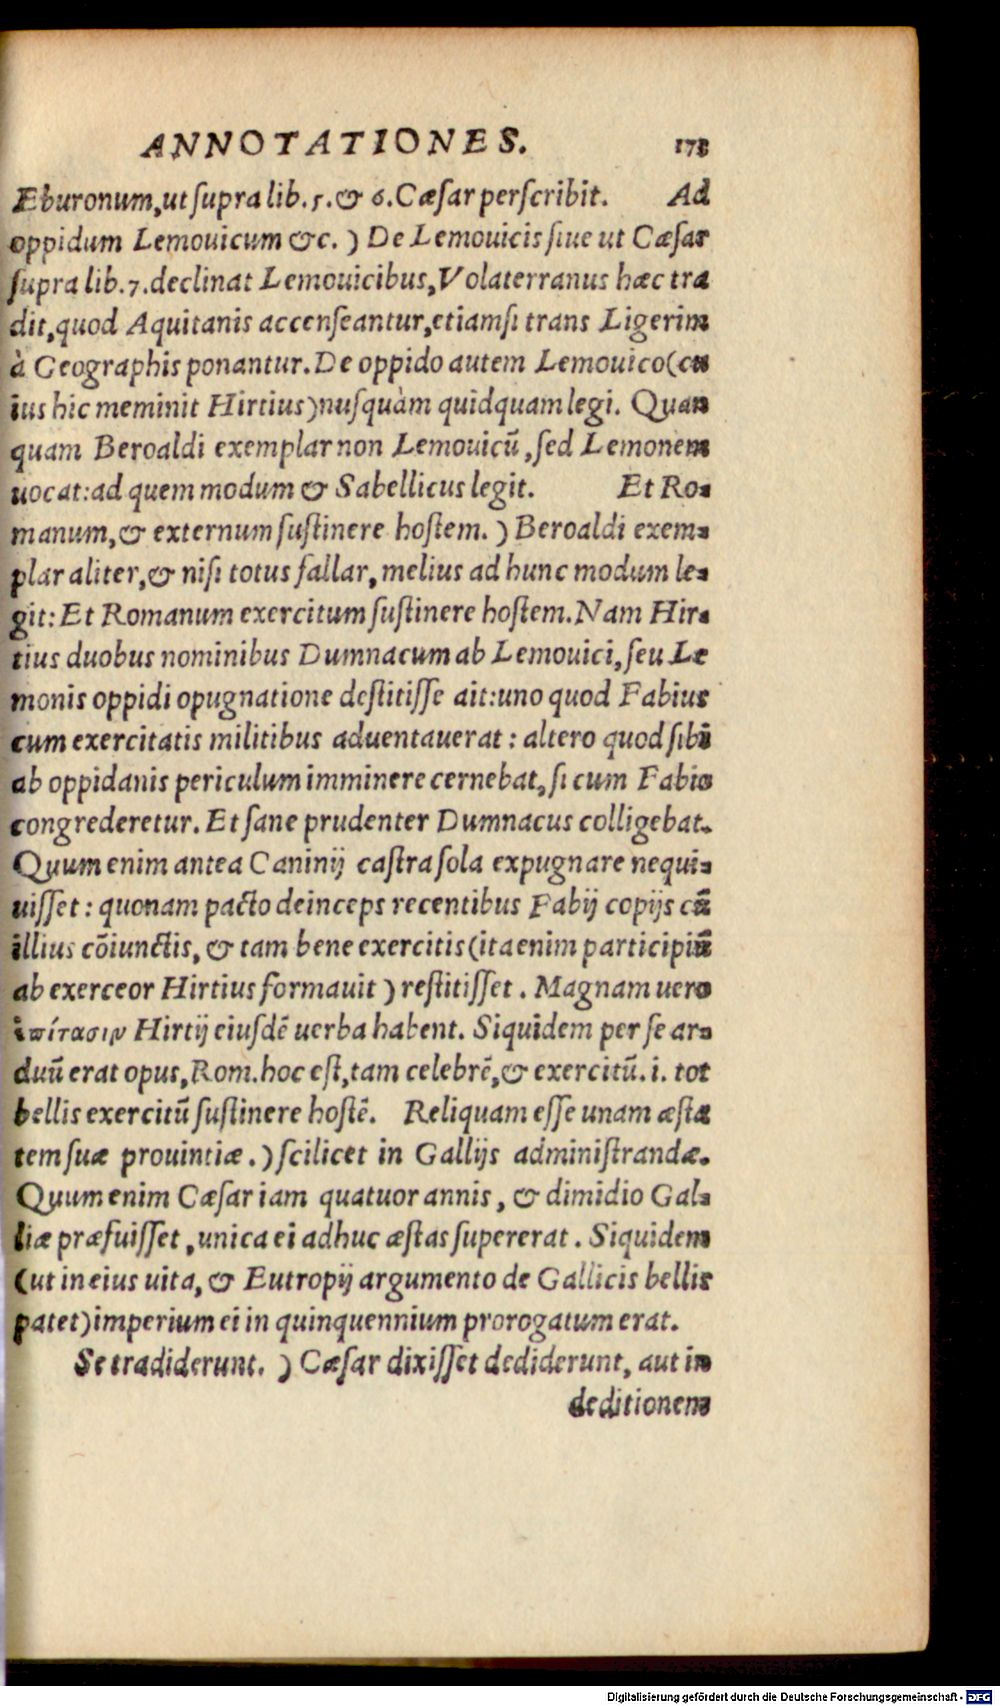 ANNOTATIONES. 173
Eburonum, ut ſupra lib. 5. & 6. Cæſar perſcribit. Ad
oppidum Lemouicum &c. ) De Lemouicis ſiue ut Cæſar
ſupra lib. 7. declinat Lemouicibus, Volaterranus hæc tra
dit, quod Aquitanis accenſeantur, etiamſi trans Ligerim
à Geographis ponantur. De oppido autem Lemouico (cu
ius hic meminit Hirtius) nuſquàm quidquam legi. Quan
quam Beroaldi exemplar non Lemouicũ, ſed Lemonem
uocat: ad quem modum & Sabellicus legit. Et Ro⸗
manum, & externum ſuſtinere hoſtem. ) Beroaldi exem⸗
plar aliter, & niſi totus fallar, melius ad hunc modum le⸗
git: Et Romanum exercitum ſuſtinere hoſtem. Nam Hir⸗
tius duobus nominibus Dumnacum ab Lemouici, ſeu Le
monis oppidi opugnatione deſtitiſſe ait: uno quod Fabius
cum exercitatis militibus aduentauerat : altero quod ſibi
ab oppidanis periculum imminere cernebat, ſi cum Fabio
congrederetur. Et ſane prudenter Dumnacus colligebat.
Quum enim antea Caninij caſtra ſola expugnare nequi⸗
uiſſet : quonam pacto deinceps recentibus Fabij copijs cũ
illius cõiunctis, & tam bene exercitis (ita enim participiũ
ab exerceor Hirtius formauit ) reſtitiſſet . Magnam uero
ἐπίτασιν Hirtij eiuſdẽ uerba habent. Siquidem per ſe ar⸗
duũ erat opus, Rom. hoc eſt, tam celebrẽ, & exercitũ. i. tot
bellis exercitũ ſuſtinere hoſtẽ. Reliquam eſſe unam æſta
tem ſuæ prouintiæ . ) ſcilicet in Gallijs adminiſtrandæ.
Quum enim Cæſar iam quatuor annis , & dimidio Gal⸗
liæ præfuiſſet , unica ei adhuc æſtas ſupererat . Siquidem
(ut in eius uita, & Eutropij argumento de Gallicis bellis
patet) imperium ei in quinquennium prorogatum erat.
Se tradiderunt. ) Cæſar dixiſſet dediderunt, aut in
deditionem
Digitalisierung gefördert durch die Deutsche Forschungsgemeinschaft - DFG